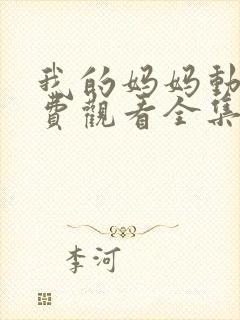 我的妈妈動
費觀看全集
李河